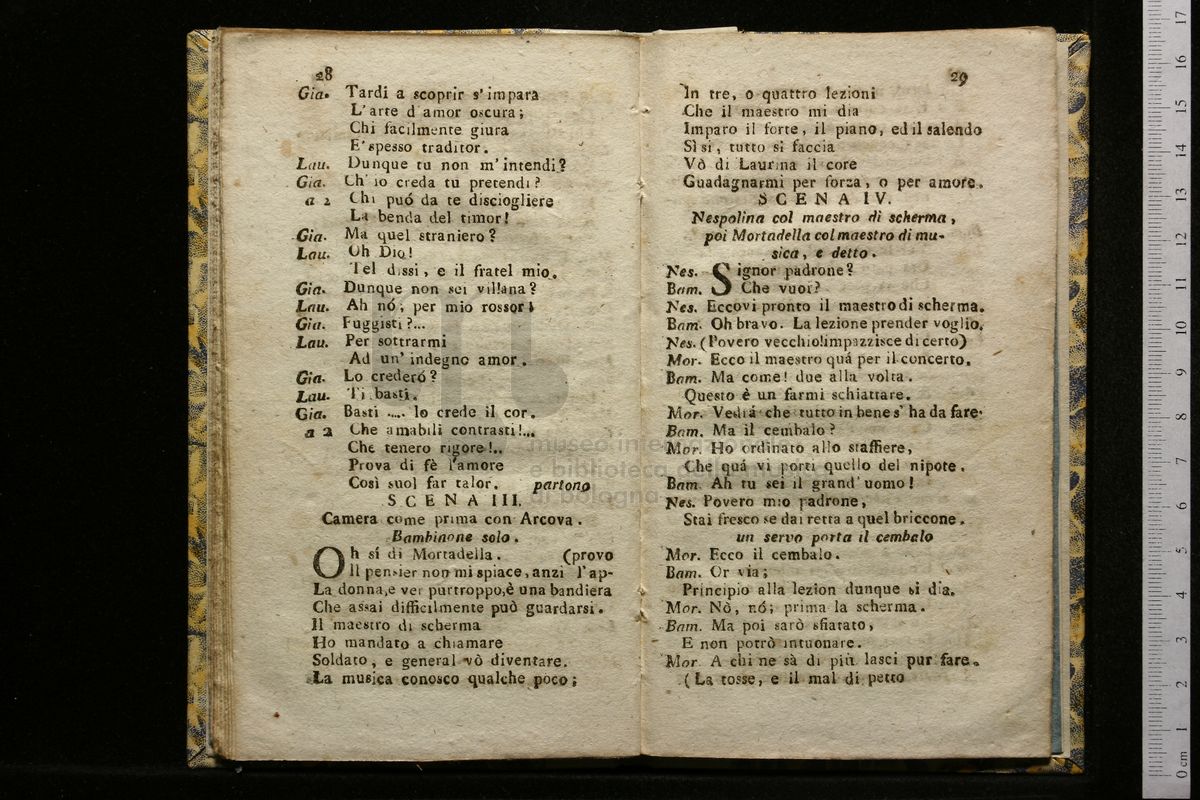 28
Gia. Tardi a scoprir s'impara
L'arte d'amor oscura;
Chi facilmente giura
E' spesso traditor.
Lau. Dunque tu non m'intendi?
Gia. Ch' io creda tu pretendi?
a 2 Chi puó da te disciogliere
La benda del timor!
Gia. Ma quel straniero?
Lau. Oh Dio!
Tel dissi, e il fratel mio.
Gia. Dunque non sei villana?
Lau. Ah nó, per mio rossor!
Gia. Fuggisti?...
Lau. Per sottrarmi
Ad un' indegno amor.
Gia. Lo crederó?
Lau. Ti basti.
Gia. Basti ..... lo crede il cor.
a 2 Che amabili contrasti!...
Che tenero rigore!..
Prova di fè l'amore
Così suol far talor. partono
SCENA III.
Camera come prima con Arcova.
Bambinone solo.
Oh sì di Mortadella. (provo
Il pensier non mi spiace, anzi l'ap-
La donna,e ver purtroppo,è una bandiera
Che assai difficilmente può guardarsi.
Il maestro di scherma
Ho mandato a chiamare
Soldato, e general vò diventare.
La musica conosco qualche poco;
29
In tre, o quattro lezioni
Che il maestro mi dia
Imparo il forte, il piano, ed il salendo
Sì si, tutto si faccia
Vò di Laurina il core
Guadagnarmi per forza, o per amore.
SCENA IV.
Nespolina col maestro di scherma,
poi Mortadella col maestro di mu-
sica, e detto.
Nes. Signor padrone?
Bam. Che vuoi?
Nes. Eccovi pronto il maestro di scherma.
Bam. Oh bravo. La lezione prender voglio.
Nes. (Povero vecchio!impazzisce di certo)
Mor. Ecco il maestro quá per il concerto.
Bam. Ma come! due alla volta.
Questo è un farmi schiattare.
Mor. Vedrá che tutto in bene s' ha da fare.
Bam. Ma il cembalo?
Mor. Ho ordinato allo staffiere,
Che quá vi porti quello del nipote.
Bam. Ah tu sei il grand' uomo!
Nes. Povero mio padrone,
Stai fresco se dai retta a quel briccone.
un servo porta il cembalo
Mor. Ecco il cembalo.
Bam. Or via;
Principio alla lezion dunque si dia.
Mor. Nò, nó; prima la scherma.
Bam. Ma poi sarò sfiatato,
E non potrò intuonare.
Mor. A chi ne sà di più lasci pur fare.
(La tosse, e il mal di petto
museo internazionale
e biblioteca della musica
di bologna
0 cm 1 2 3 4 5 6 7 8 9 10 11 12 13 14 15 16 17